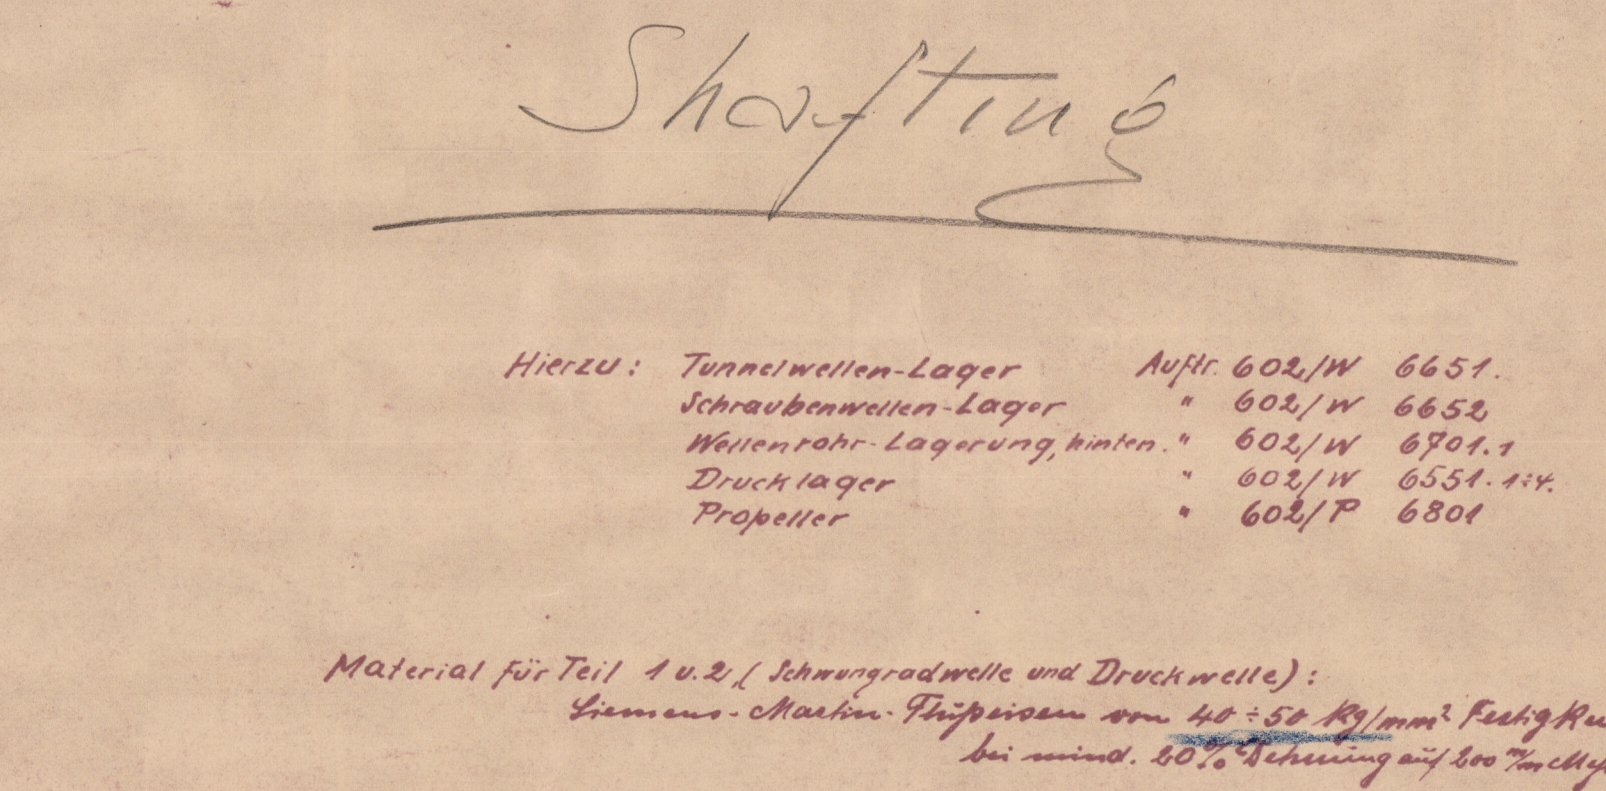 Shafting
Hierzu: Tunnelwellen-Lager Auftr. 602/W 6651.
Schraubenwellen-Lager " 602/W 6652
Wellenrohr-Lagerung, hinten. " 602/W 6701.1
Drucklager " 602/W 6551.1÷4.
Propeller " 602/P 6801
Material für Teil 1 u. 2, (Schwungradwelle und Druckwelle):
Siemens-Martin-Flußeisen von 40÷50 Kg/mm² Festigke
bei mind. 20% Dehnung auf 200 m/m